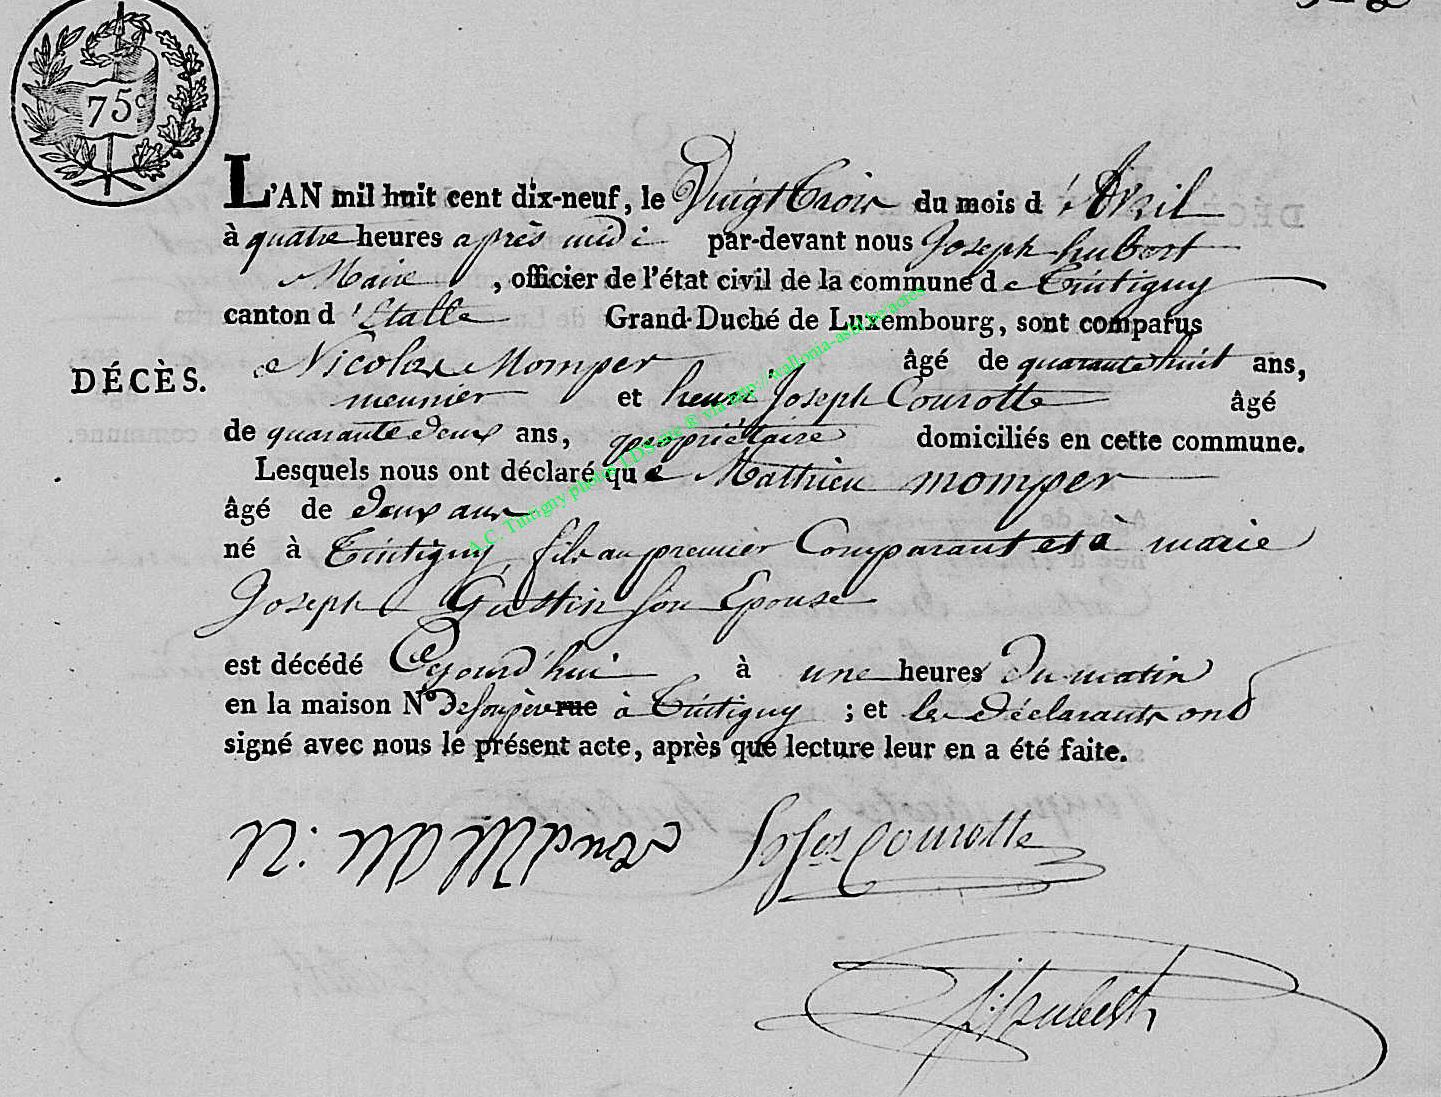 75c
L'AN mil huit cent dix-neuf, le Vingt trois du mois d'Avril
à quatre heures après midi par-devant nous Joseph hubert
Maire, officier de l'état civil de la commune de Tintigny
canton d'Etalle Grand-Duché de Luxembourg, sont comparus
DÉCÈS.
Nicolas Momper âgé de quarante huit ans,
meunier et henri Joseph Courotte âgé
de quarante deux ans, propriétaire domiciliés en cette commune.
Lesquels nous ont déclaré que Mathieu momper
âgé de deux ans
né à Tintigny, fils au premier Comparant et à marie
Joseph Gustin son Epouse
est décédé Cejourd'hui à une heures du matin
en la maison No de son père rue à Tintigny ; et les déclarants ont
signé avec nous le présent acte, après que lecture leur en a été faite.
A.C. Tintigny photos LDS site ® via http://wallonia-asbl.be/actes
N: Courotte
J: hubert